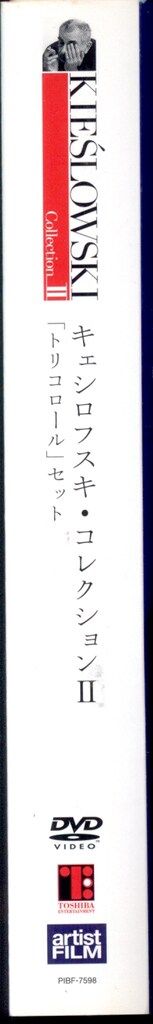 KIEŚLOWSKI
Collection II
キェシロフスキ・コレクションII
「トリコロール」セット
DVD
VIDEO
TOSHIBA
ENTERTAINMENT
artist
FILM
PIBF-7598